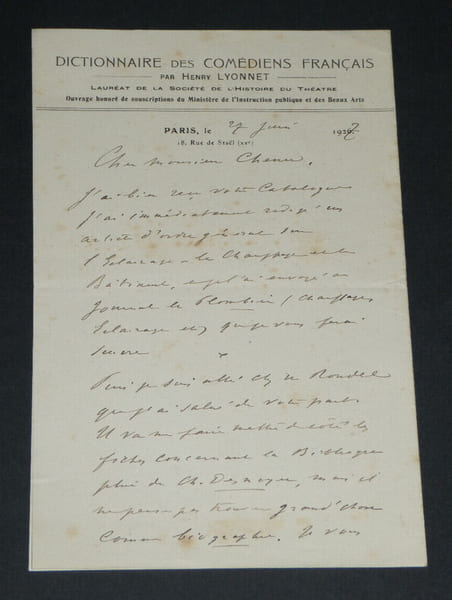 DICTIONNAIRE DES COMÉDIENS FRANÇAIS
PAR HENRY LYONNET
LAURÉAT DE LA SOCIÉTÉ DE L'HISTOIRE DU THÉATRE
Ouvrage honoré de souscriptions du Ministère de l'Instruction publique et des Beaux Arts
PARIS, le 27 Juin 1927
18, Rue de Staël (XVe)
Cher monsieur
J'ai bien reçu votre Catalogue
J'ai immédiatement rédigé un
article d'ordre général sur
l'Eclairage et le Chauffage et le
Bâtiment, et je l'ai envoyé au
Journal le Plombier / Chauffage
Eclairage etc que je vous ferai
suivre
Puis je suis allé chez M Rondel
que j'ai salué de votre part.
Il va me faire mettre de côté les
fiches concernant la Bibliogra
phie de Ch. Desnoyer, mais il
ne pense pas trouver grand'chose
comme biographie. Je vous